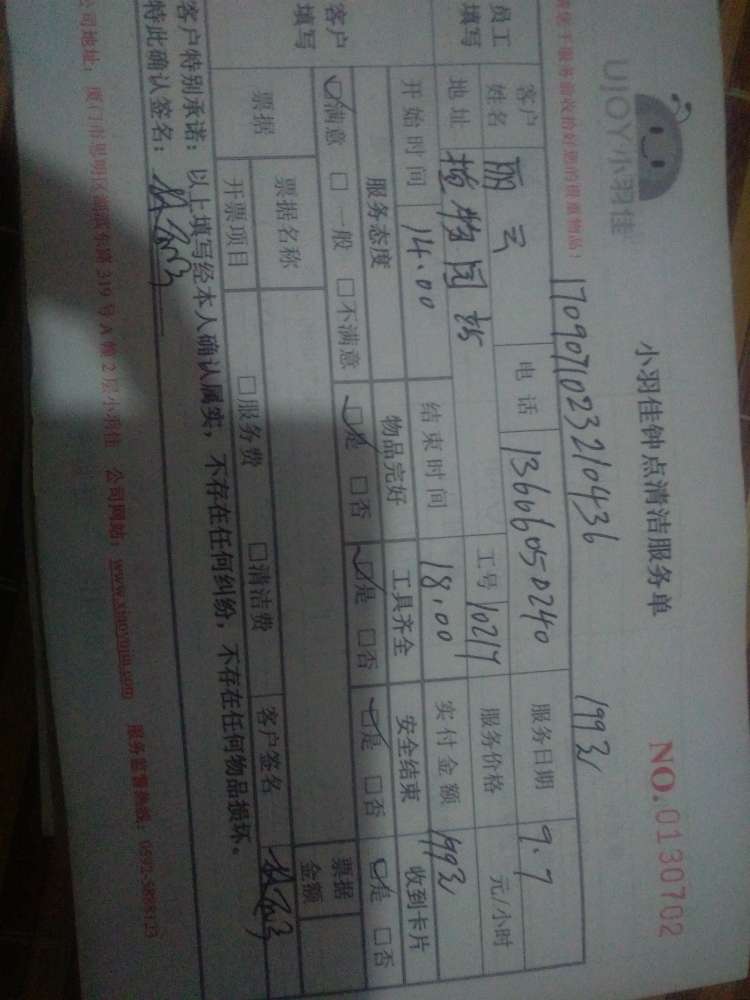 UJOY小羽佳
小羽佳钟点清洁服务单
NO.0130702
请您于服务前收拾好您的贵重物品!
1709071023210436
199元
员工填写
客户姓名 丽云 电话 13666050240 服务日期 9.7
地址 植物园站 工号 10217 服务价格 元/小时
开始时间 14:00 结束时间 18:00 实付金额 199元
客户填写
服务态度 物品完好 工具齐全 安全结束 收到卡片
☑满意 □一般 □不满意 ☑是 □否 ☑是 □否 ☑是 □否 ☑是 □否
票据 票据名称 票据金额
开票项目 □服务费 □清洁费 客户签名
客户特别承诺:以上填写经本人确认属实,不存在任何纠纷,不存在任何物品损坏。
特此确认签名:
公司地址:厦门市思明区湖滨东路319号A幢2层小羽佳 公司网站:www.xiaoyujia.com 服务监督热线:0592-5898123